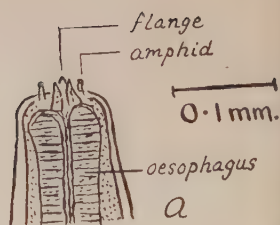 flange
amphid
0·1mm.
oesophagus
a